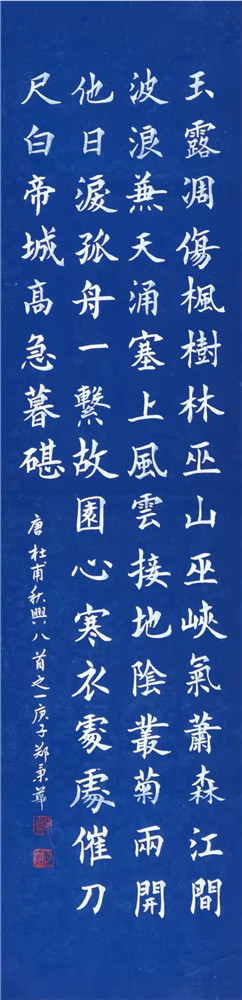 玉露凋傷楓樹林巫山巫峽氣蕭森江間
波浪兼天涌塞上風雲接地陰叢菊兩開
他日淚孤舟一繫故園心寒衣處處催刀
尺白帝城高急暮碪
唐杜甫秋興八首之一庚子郑秉華